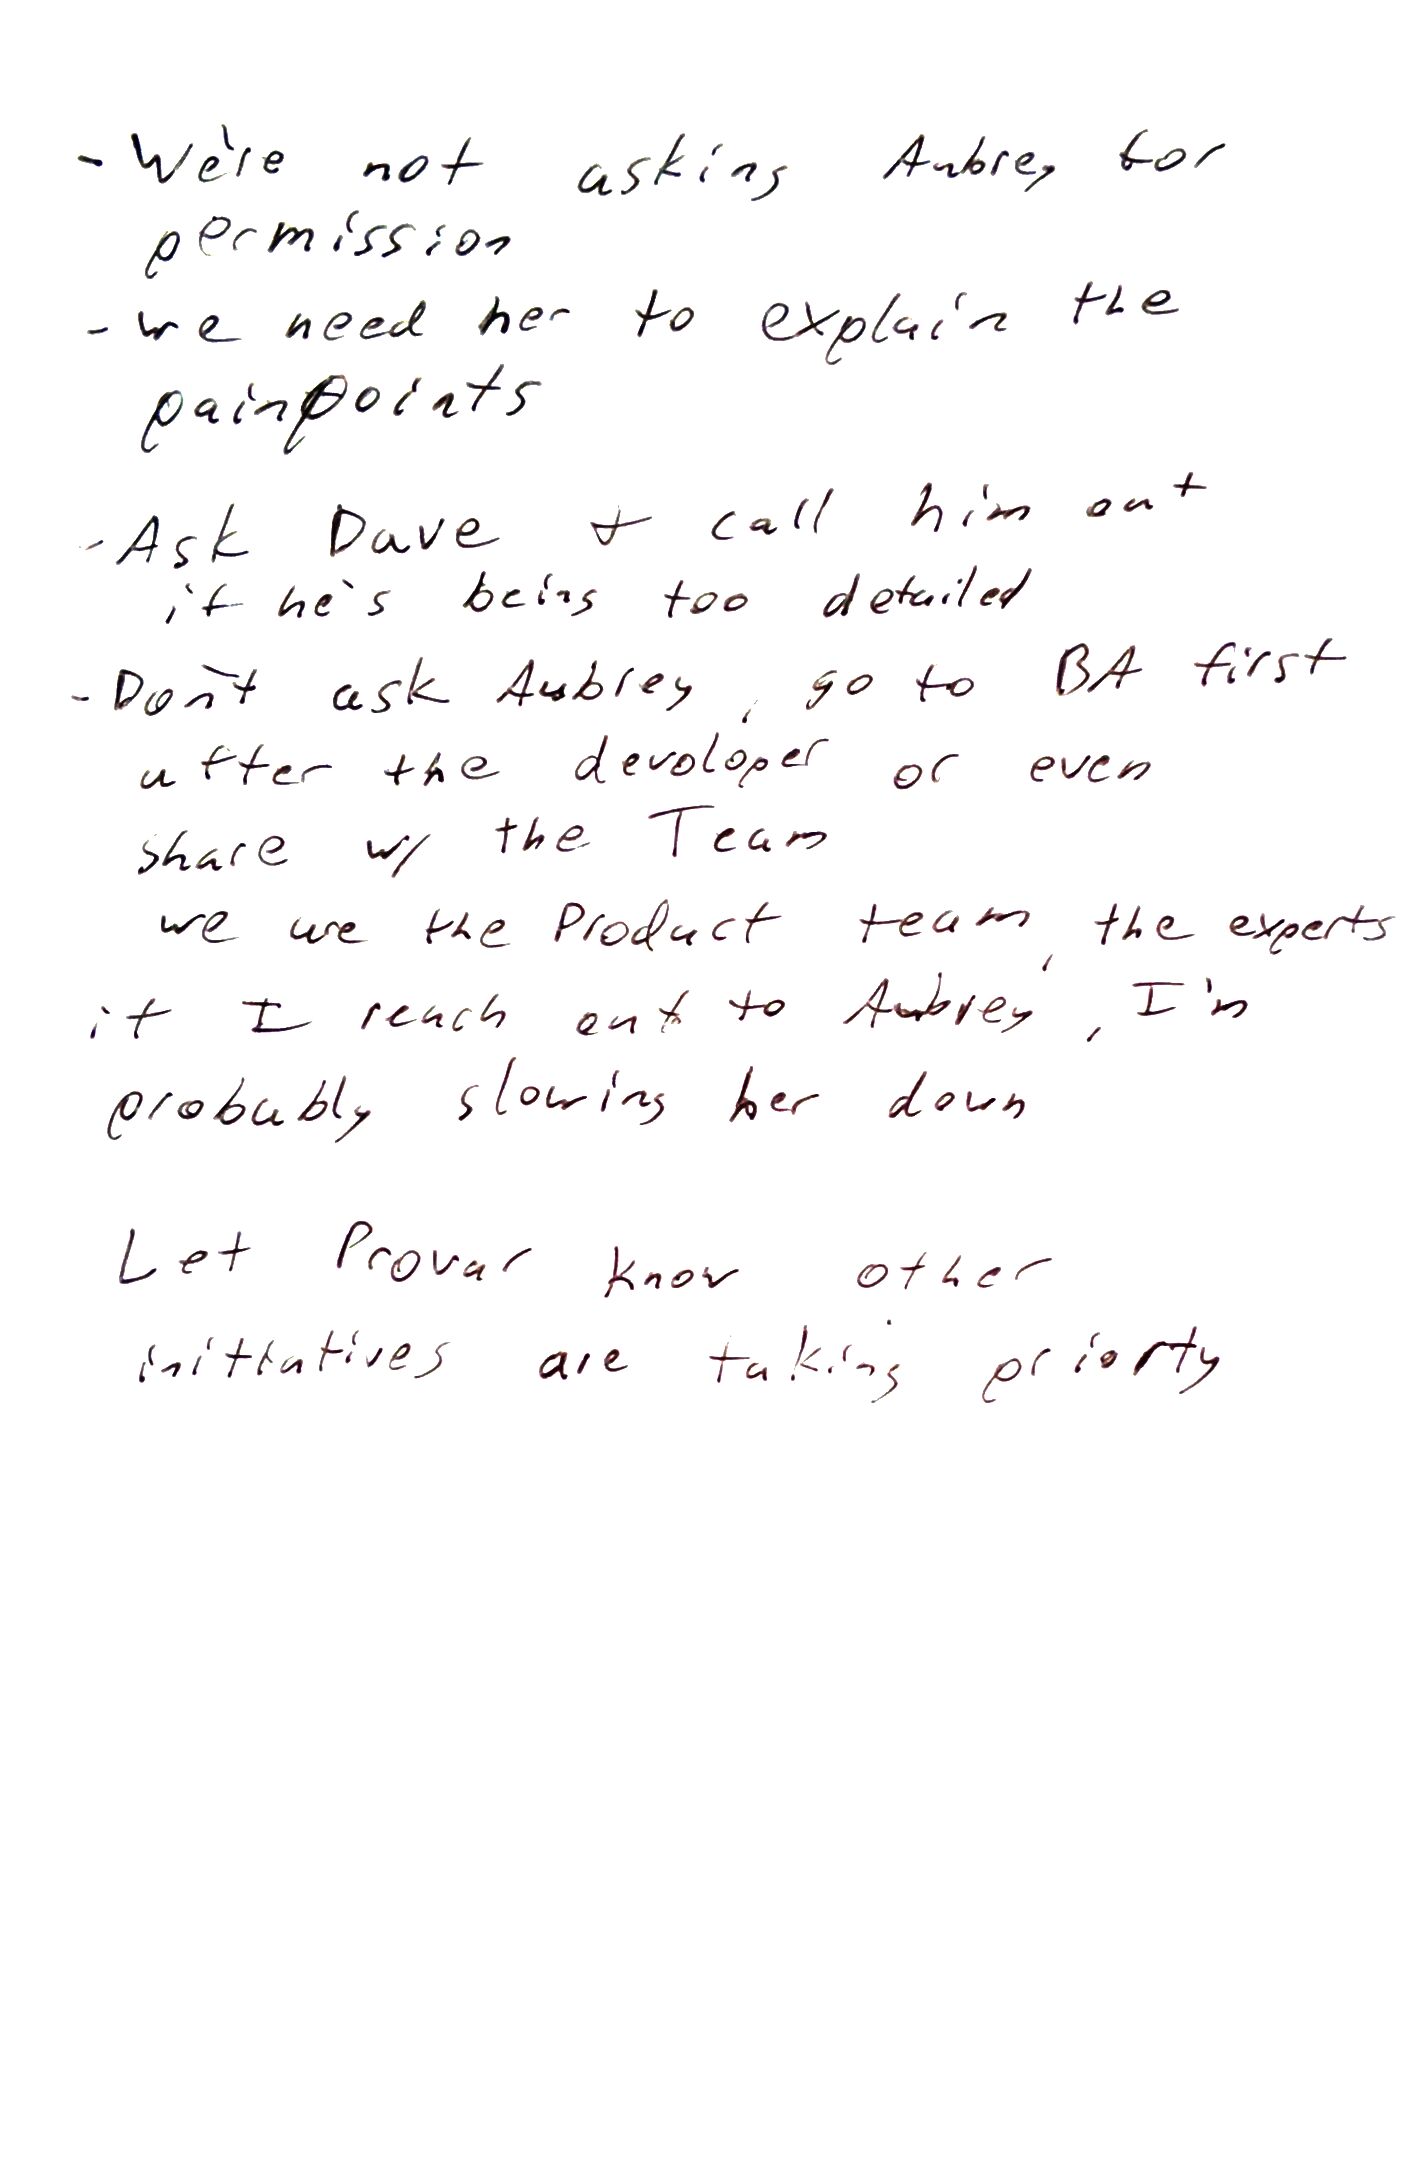 - We're not asking Aubrey for
permission
- we need her to explain the
painpoints
- Ask Dave + call him out
if he's being too detailed
- Don't ask Aubrey, go to BA first
after the devoloper or even
share w/ the Team
we are the Product team, the experts
if I reach out to Aubrey, I'm
probably slowing her down
Let Provar know other
initiatives are taking priorty